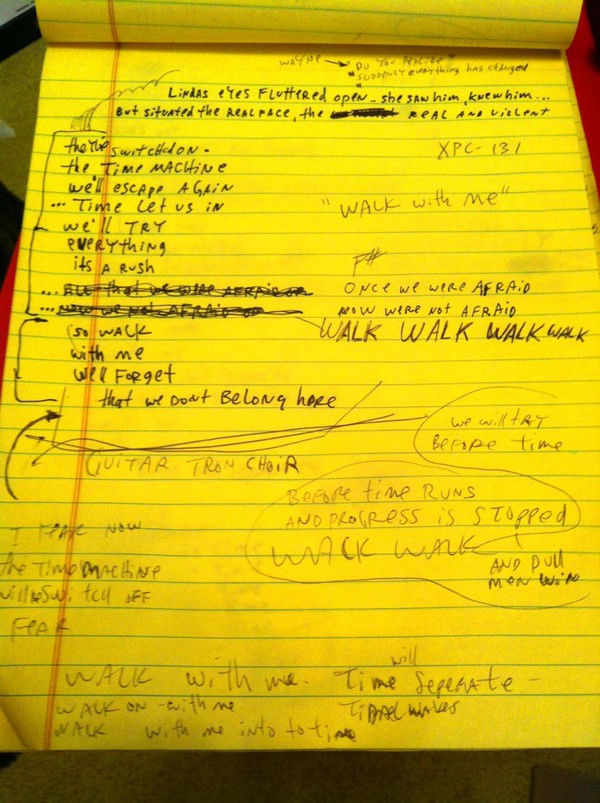 WAYNE → DO YOU REALIZE
"SUDDENLY EVERYTHING HAS CHANGED
LINDAS EYES FLUTTERED OPEN.. She SAW HIM, KNEW him...
But situated the REAL FACE, the REAL AND VIOLENT
SWITCHED ON -
the Time MACHINE
we'll escape AGAIN
... Time Let us in
we'll TRY
everything
its A Rush
... ALL that we were AFRAID OF
... NOW we NOT AFRAID OF
so WALK
with me
well Forget
that we DONT BELONG here
XPC-131
"WALK with me"
F#
ONCE we were AFRAID
NOW WERE NOT AFRAID
WALK WALK WALK WALK
GUITAR TRON CHOIR
we will TRY
BEFORE time
BEFORE time RUNS
AND PROGRESS is STOPPED
WALK WALK
AND DULL
MEN WIN
I FEAR NOW
the TIME MACHINE
will Switch OFF
FEAR
WALK with me.
WALK ON - with me
WALK with me into to time
Time will Seperate -